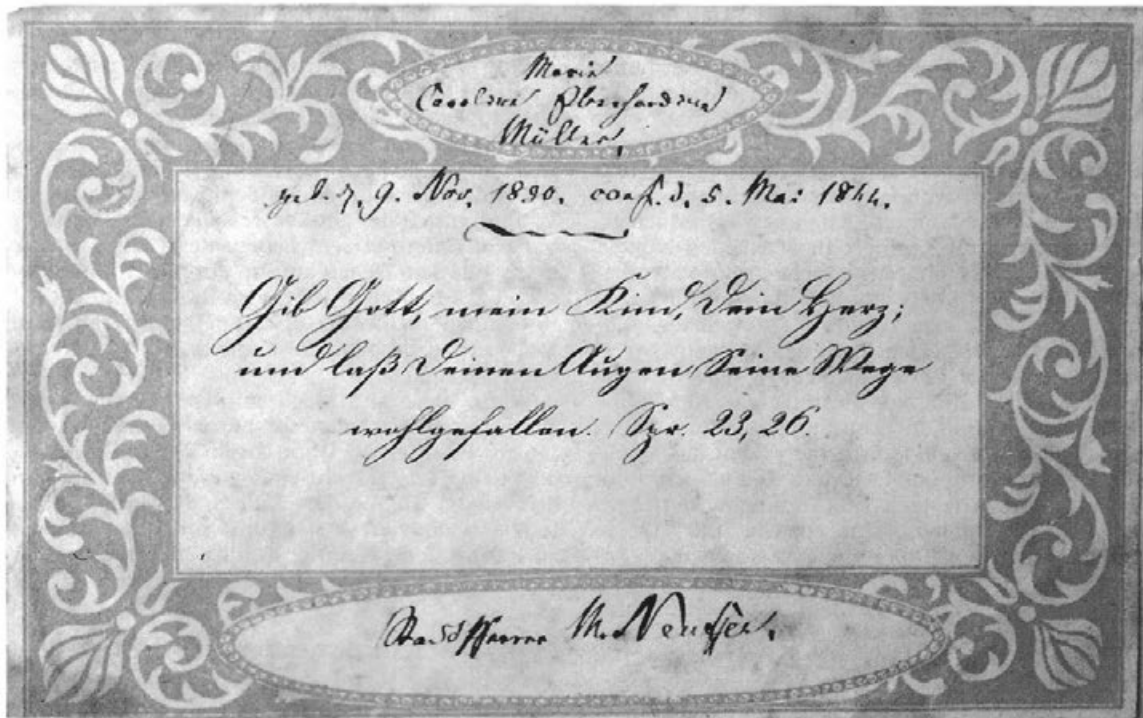 Marie
Caroline Eberhardine
Müller,
geb. d. 9. Nov. 1830. conf. d. 5. Mai 1844.
Gib Gott, mein Kind, Dein Herz;
und laß Deinen Augen Seine Wege
wohlgefallen. Spr. 23, 26.
Stadtpfarrer M.